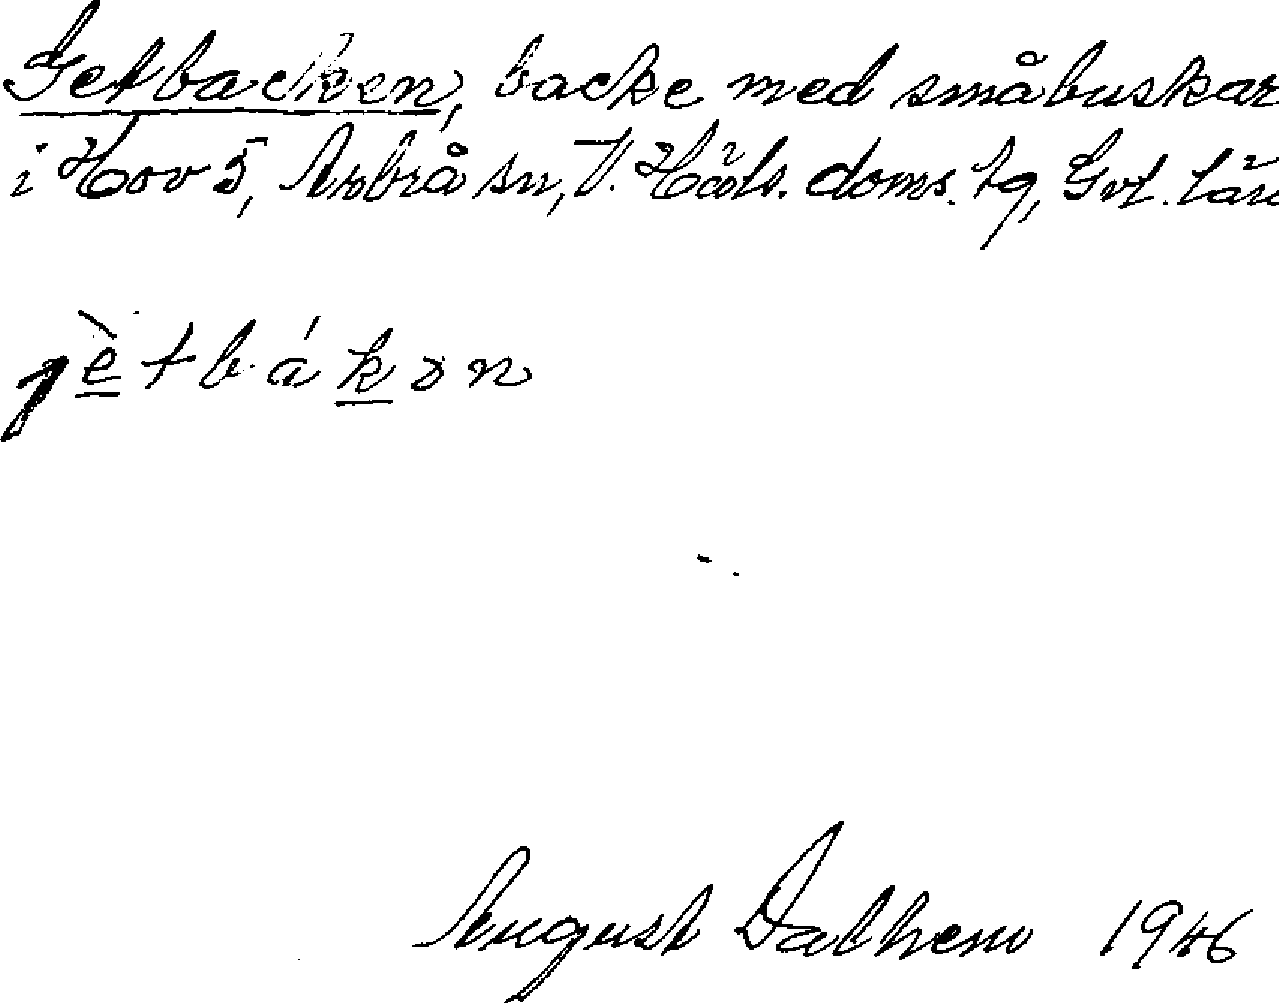 Getbacken, backe med småbuskar
i Hov 5, Arbrå sn, V. Häls. doms. tg, Gvl. län
jè̱tbáḵən
August Dalhem 1946